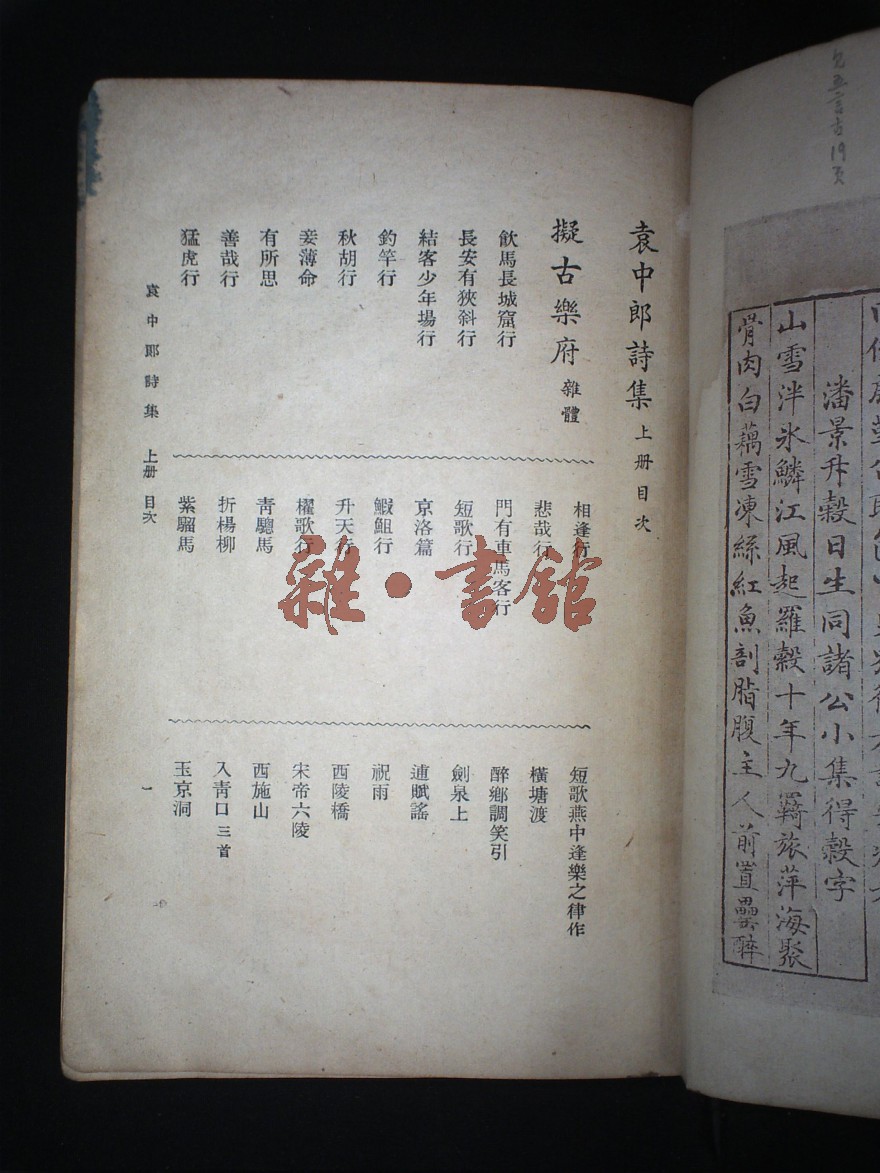 袁中郎詩集 上册 目次
擬古樂府 雜體
飲馬長城窟行
長安有狹斜行
結客少年場行
釣竿行
秋胡行
妾薄命
有所思
善哉行
猛虎行
相逢行
悲哉行
門有車馬客行
短歌行
京洛篇
鰕䱇行
升天行
櫂歌行
靑驄馬
折楊柳
紫騮馬
短歌燕中逢樂之律作
橫塘渡
醉鄉調笑引
劍泉上
逋賦謠
祝雨
西陵橋
宋帝六陵
西施山
入靑口 三首
玉京洞
袁中郎詩集 上册 目次
一
雜·書館
五言古19页
潘景升穀日生同諸公小集得穀字
山雪泮氷鱗江風起羅縠十年九羇旅萍海聚
骨肉白藕雪凍絲紅魚剖脂腹主人前置罍醉